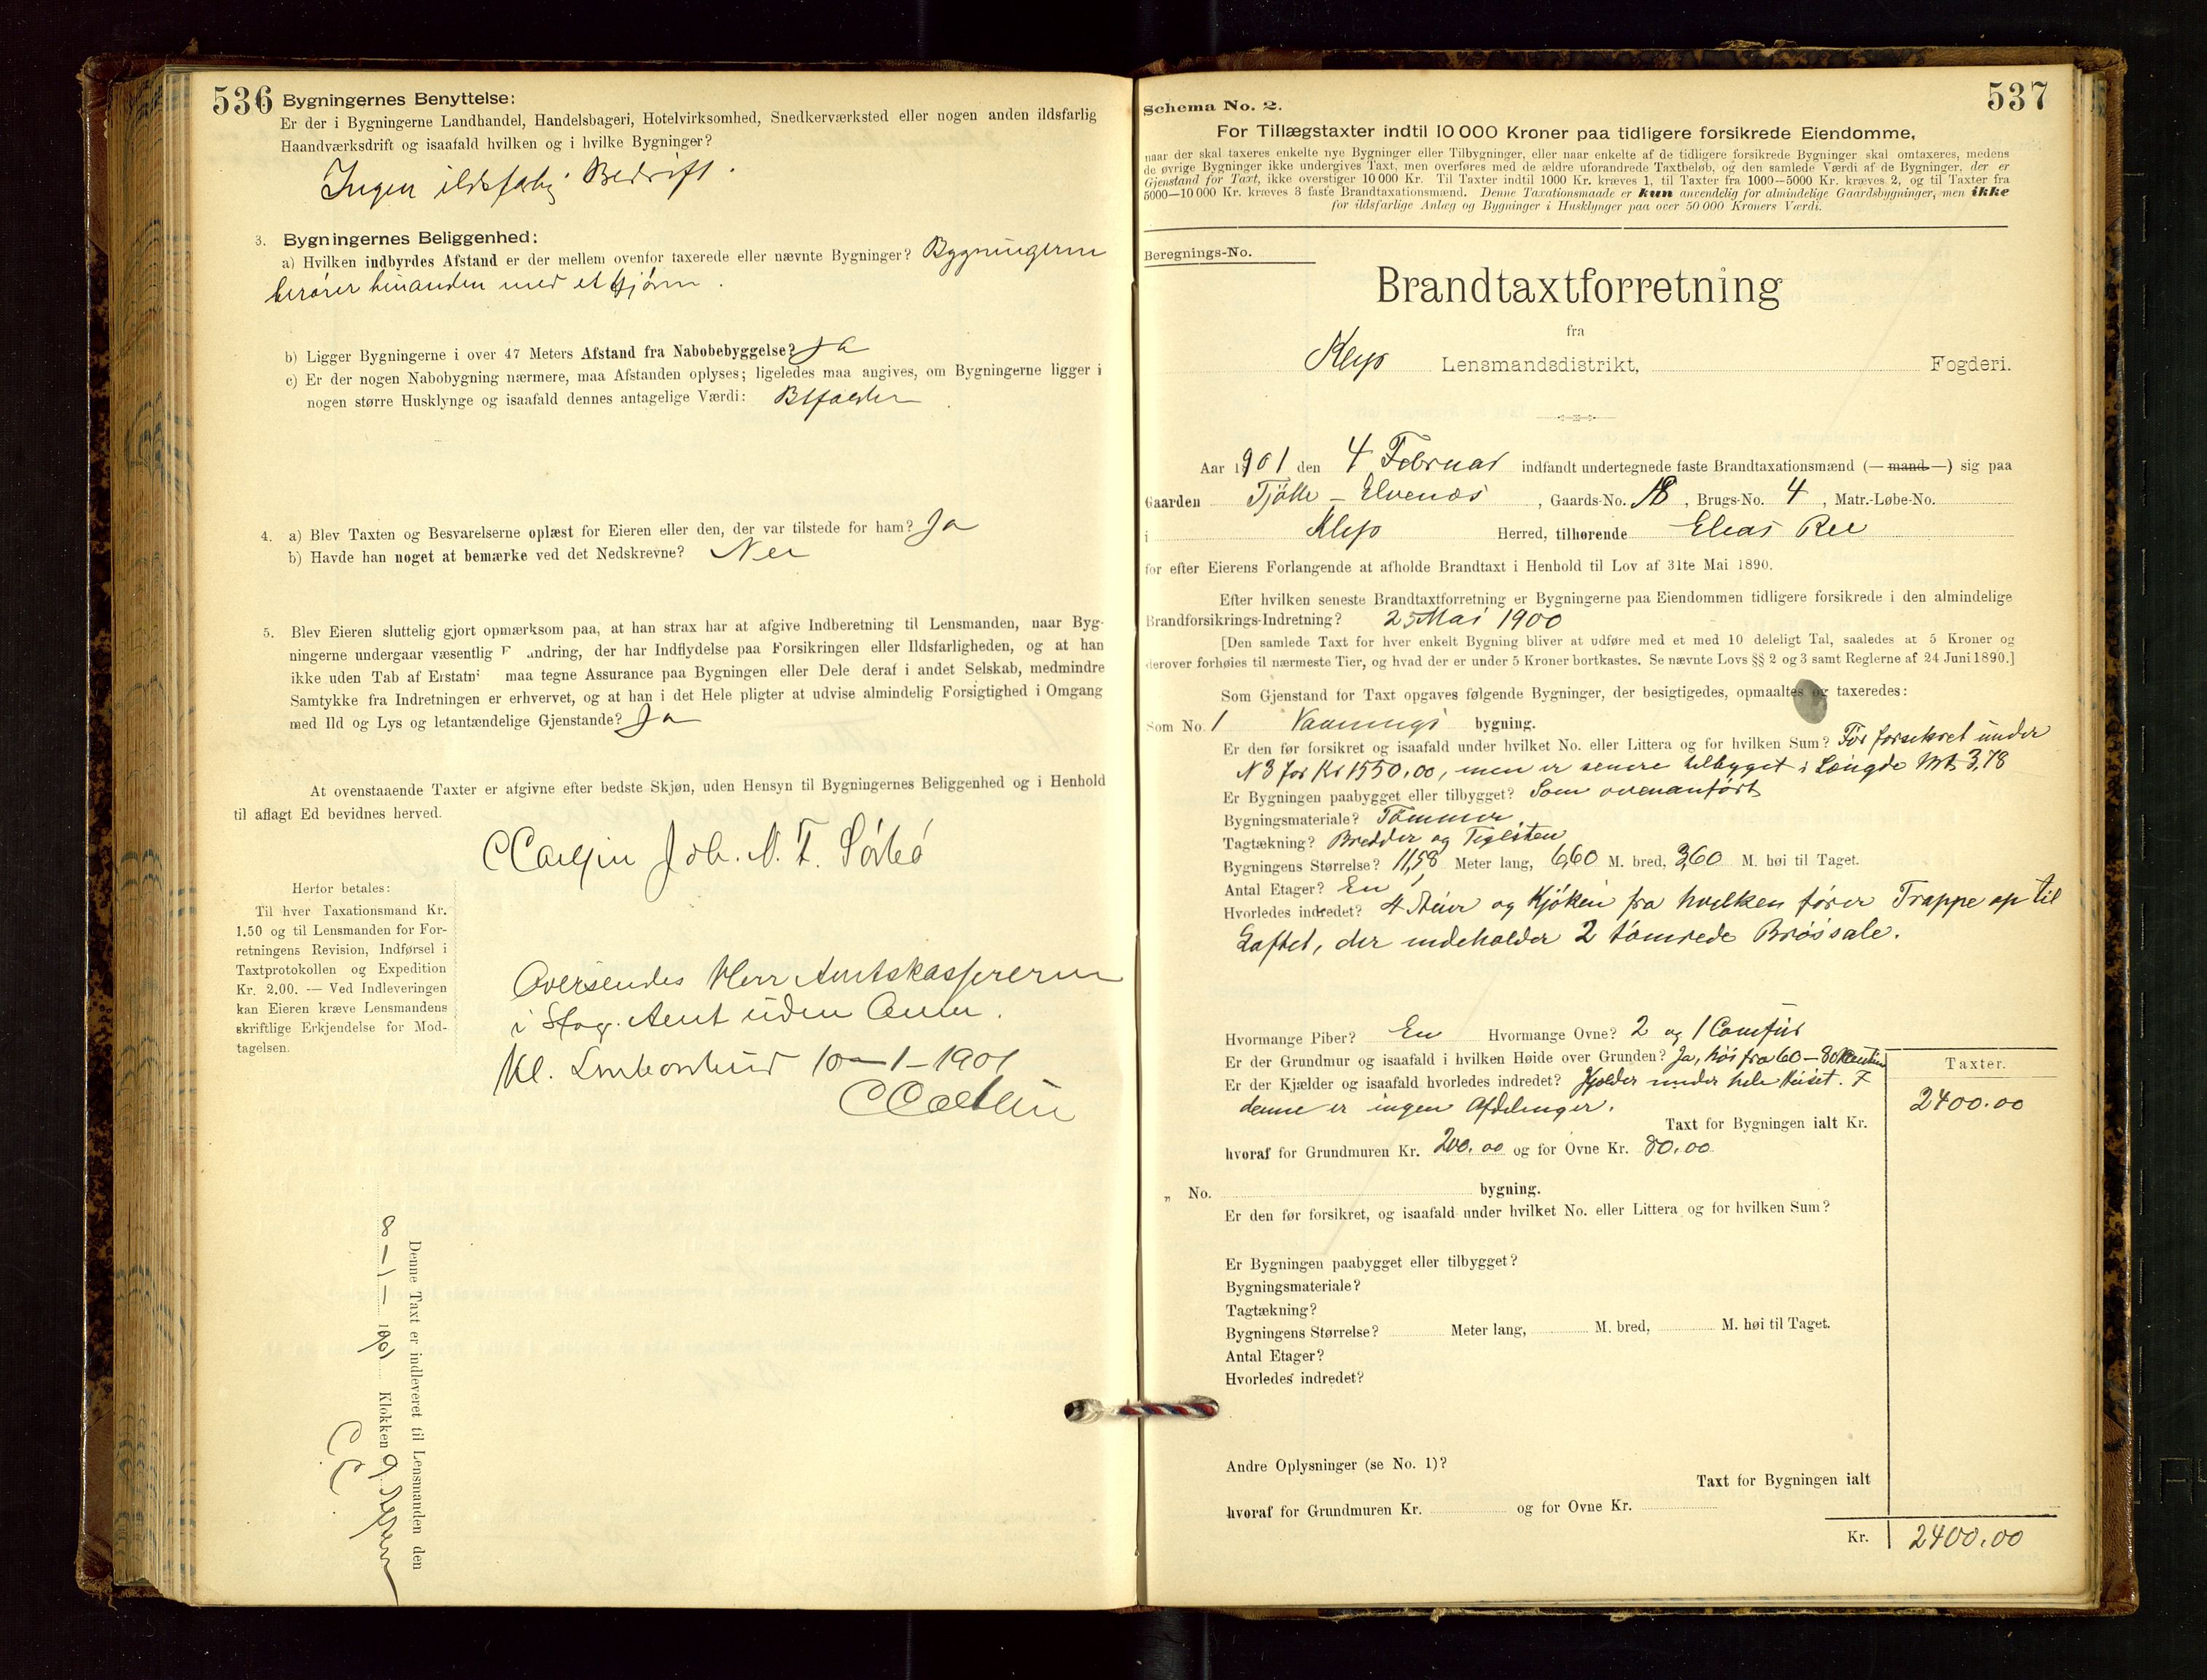 536 Bygningernes Benyttelse:
Er der i Bygningerne Landhandel, Handelsbageri, Hotelvirksomhed, Snedkerværksted eller nogen anden ildsfarlig
Haandværksdrift og isaafald hvilken og i hvilke Bygninger?
Ingen ildsfarlig Bedrift.
3. Bygningernes Beliggenhed:
a) Hvilken indbyrdes Afstand er der mellem ovenfor taxerede eller nævnte Bygninger? Bygningerne
berører hinanden med et Hjørne.
b) Ligger Bygningerne i over 47 Meters Afstand fra Nabobebyggelse? Ja
c) Er der nogen Nabobygning nærmere, maa Afstanden oplyses; ligeledes maa angives, om Bygningerne ligger i
nogen større Husklynge og isaafald dennes antagelige Værdi: Bortfalder
4. a) Blev Taxten og Besvarelserne oplæst for Eieren eller den, der var tilstede for ham? Ja
b) Havde han noget at bemærke ved det Nedskrevne? Nei
5. Blev Eieren sluttelig gjort opmærksom paa, at han strax har at afgive Indberetning til Lensmanden, naar Byg-
ningerne undergaar væsentlig F andring, der har Indflydelse paa Forsikringen eller Ildsfarligheden, og at han
ikke uden Tab af Erstatn maa tegne Assurance paa Bygningen eller Dele deraf i andet Selskab, medmindre
Samtykke fra Indretningen er erhvervet, og at han i det Hele pligter at udvise almindelig Forsigtighed i Omgang
med Ild og Lys og letantændelige Gjenstande? Ja
At ovenstaaende Taxter er afgivne efter bedste Skjøn, uden Hensyn til Bygningernes Beliggenhed og i Henhold
til aflagt Ed bevidnes herved.
Joh. N. T. Sörbö
Herfor betales:
Til hver Taxationsmand Kr.
1.50 og til Lensmanden for For-
retningens Revision, Indførsel i
Taxtprotokollen og Expedition
Kr. 2.00. — Ved Indleveringen
kan Eieren kræve Lensmandens
skriftlige Erkjendelse for Mod-
tagelsen.
Oversendes Herr Amtskassereren
i Stav. Amt uden Anm.
Kl. Lensmbestillingen 10-1-1901
Denne Taxt er indleveret til Lensmanden den
8 — 1 — 1901 Klokken 9
CC
537
Schema No. 2.
For Tillægstaxter indtil 10 000 Kroner paa tidligere forsikrede Eiendomme,
naar der skal taxeres enkelte nye Bygninger eller Tilbygninger, eller naar enkelte af de tidligere forsikrede Bygninger skal omtaxeres, medens
de øvrige Bygninger ikke undergives Taxt, men overføres med de ældre uforandrede Taxtbeløb, og den samlede Værdi af de Bygninger, der er
Gjenstand for Taxt, ikke overstiger 10 000 Kr. Til Taxter indtil 1000 Kr. kræves 1, til Taxter fra 1000—5000 Kr. kræves 2, og til Taxter fra
5000—10 000 Kr. kræves 3 faste Brandtaxationsmænd. Denne Taxationsmaade er kun anvendelig for almindelige Gaardsbygninger, men ikke
for ildsfarlige Anlæg og Bygninger i Husklynger paa over 50 000 Kroners Værdi.
Beregnings-No.
Brandtaxtforretning
fra
Klep Lensmandsdistrikt, Fogderi.
Aar 1901 den 4 Februar indfandt undertegnede faste Brandtaxationsmænd (— mand —) sig paa
Gaarden Tjötte - Elvenæs, Gaards-No. 18, Brugs-No. 4, Matr.-Løbe-No.
i Klep Herred, tilhørende Elias Ree
for efter Eierens Forlangende at afholde Brandtaxt i Henhold til Lov af 31te Mai 1890.
Efter hvilken seneste Brandtaxtforretning er Bygningerne paa Eiendommen tidligere forsikrede i den almindelige
Brandforsikrings-Indretning? 25 Mai 1900
[Den samlede Taxt for hver enkelt Bygning bliver at udføre med et med 10 deleligt Tal, saaledes at 5 Kroner og
derover forhøies til nærmeste Tier, og hvad der er under 5 Kroner bortkastes. Se nævnte Lovs §§ 2 og 3 samt Reglerne af 24 Juni 1890.]
Som Gjenstand for Taxt opgaves følgende Bygninger, der besigtigedes, opmaaltes og taxeredes:
Som No. 1 Vaanings bygning.
Er den før forsikret og isaafald under hvilket No. eller Littera og for hvilken Sum? Før forsikret under
N 3 for Kr 1550.00, men er senere tilbygget i Længde Mt. 3,78
Er Bygningen paabygget eller tilbygget? Som ovenanført
Bygningsmateriale? Tømmer
Tagtækning? Bredder og Teglsten
Bygningens Størrelse? 11,58 Meter lang, 6,60 M. bred, 3,60 M. høi til Taget.
Antal Etager? En
Hvorledes indredet? 4 Stuer og Kjøken fra hvilken fører Trappe op til
Loftet, der indeholder 2 tømrede Brøssale.
Hvormange Piber? En Hvormange Ovne? 2 og 1 Comfur
Er der Grundmur og isaafald i hvilken Høide over Grunden? Ja, høi fra 60 - 80
Er der Kjælder og isaafald hvorledes indredet? Kjelder under hele Huset. I
denne er ingen Afdelinger.
Taxter.
Taxt for Bygningen ialt Kr. 2400.00
hvoraf for Grundmuren Kr. 200.00 og for Ovne Kr. 80.00
„ No. bygning.
Er den før forsikret, og isaafald under hvilket No. eller Littera og for hvilken Sum?
Er Bygningen paabygget eller tilbygget?
Bygningsmateriale?
Tagtækning?
Bygningens Størrelse? Meter lang, M. bred, M. høi til Taget.
Antal Etager?
Hvorledes indredet?
Andre Oplysninger (se No. 1)?
Taxt for Bygningen ialt
hvoraf for Grundmuren Kr. og for Ovne Kr.
Kr. 2400.00